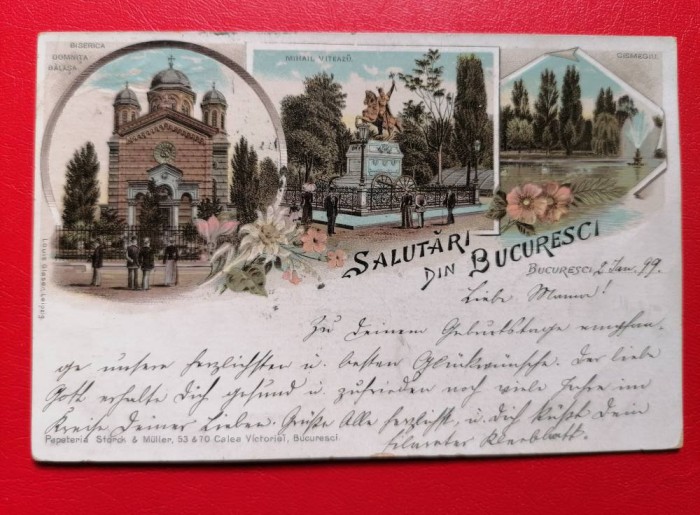 BISERICA
DOMNIȚA
BĂLAȘA
MIHAIL VITEAZŬ
CISMEGIŬ
SALUTĂRI
DIN BUCURESCI
BUCURESCI, 2 Jan. 99.
Liebe Mama!
Zu Deinem Geburtstage empfan-
ge unsere herzlichsten u. besten Glückwünsche. Der liebe
Gott erhalte Dich gesund u. zufrieden noch viele Jahre im
Kreise Deiner Lieben. Grüße Alle herzlichst, u. Dich küßt Dein
Papeteria Störck & Müller, 53 & 70 Calea Victoriei, Bucuresci.
Louis Glaser, Leipzig